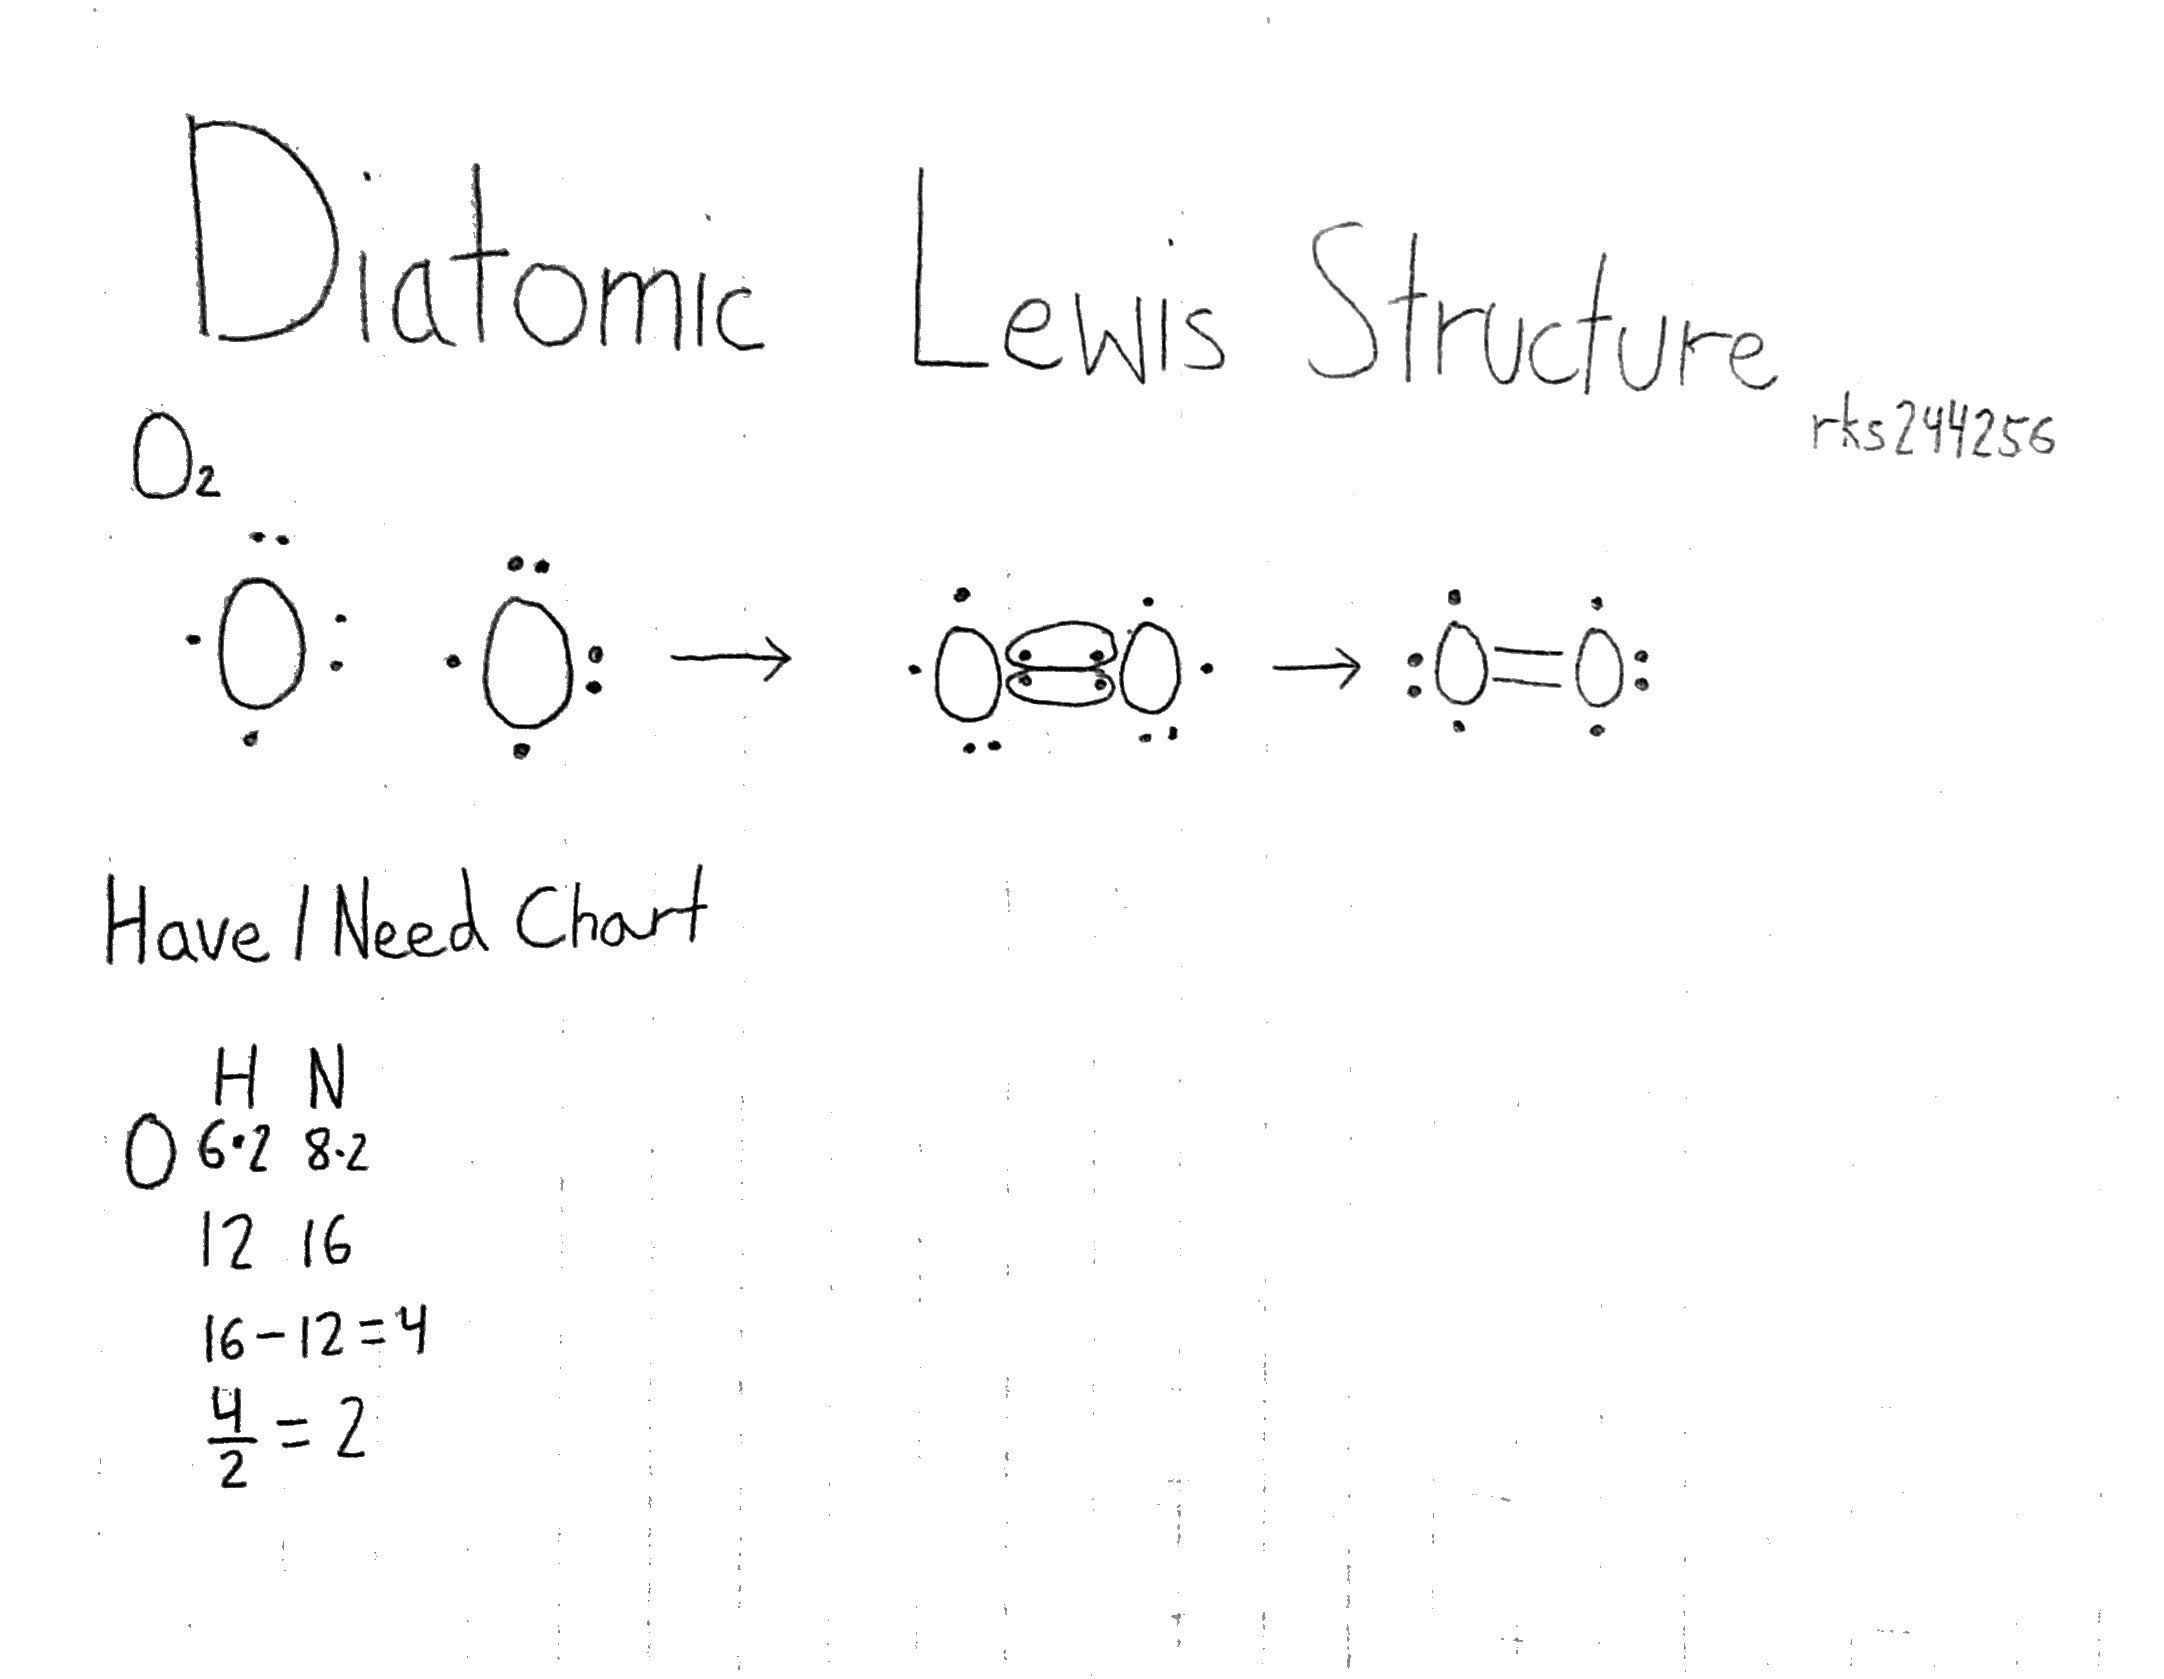 Diatomic Lewis Structure
rks244256
O₂
O O → O O → O=O
Have/Need Chart
H N
O 6·2 8·2
12 16
16-12=4
4/2 = 2